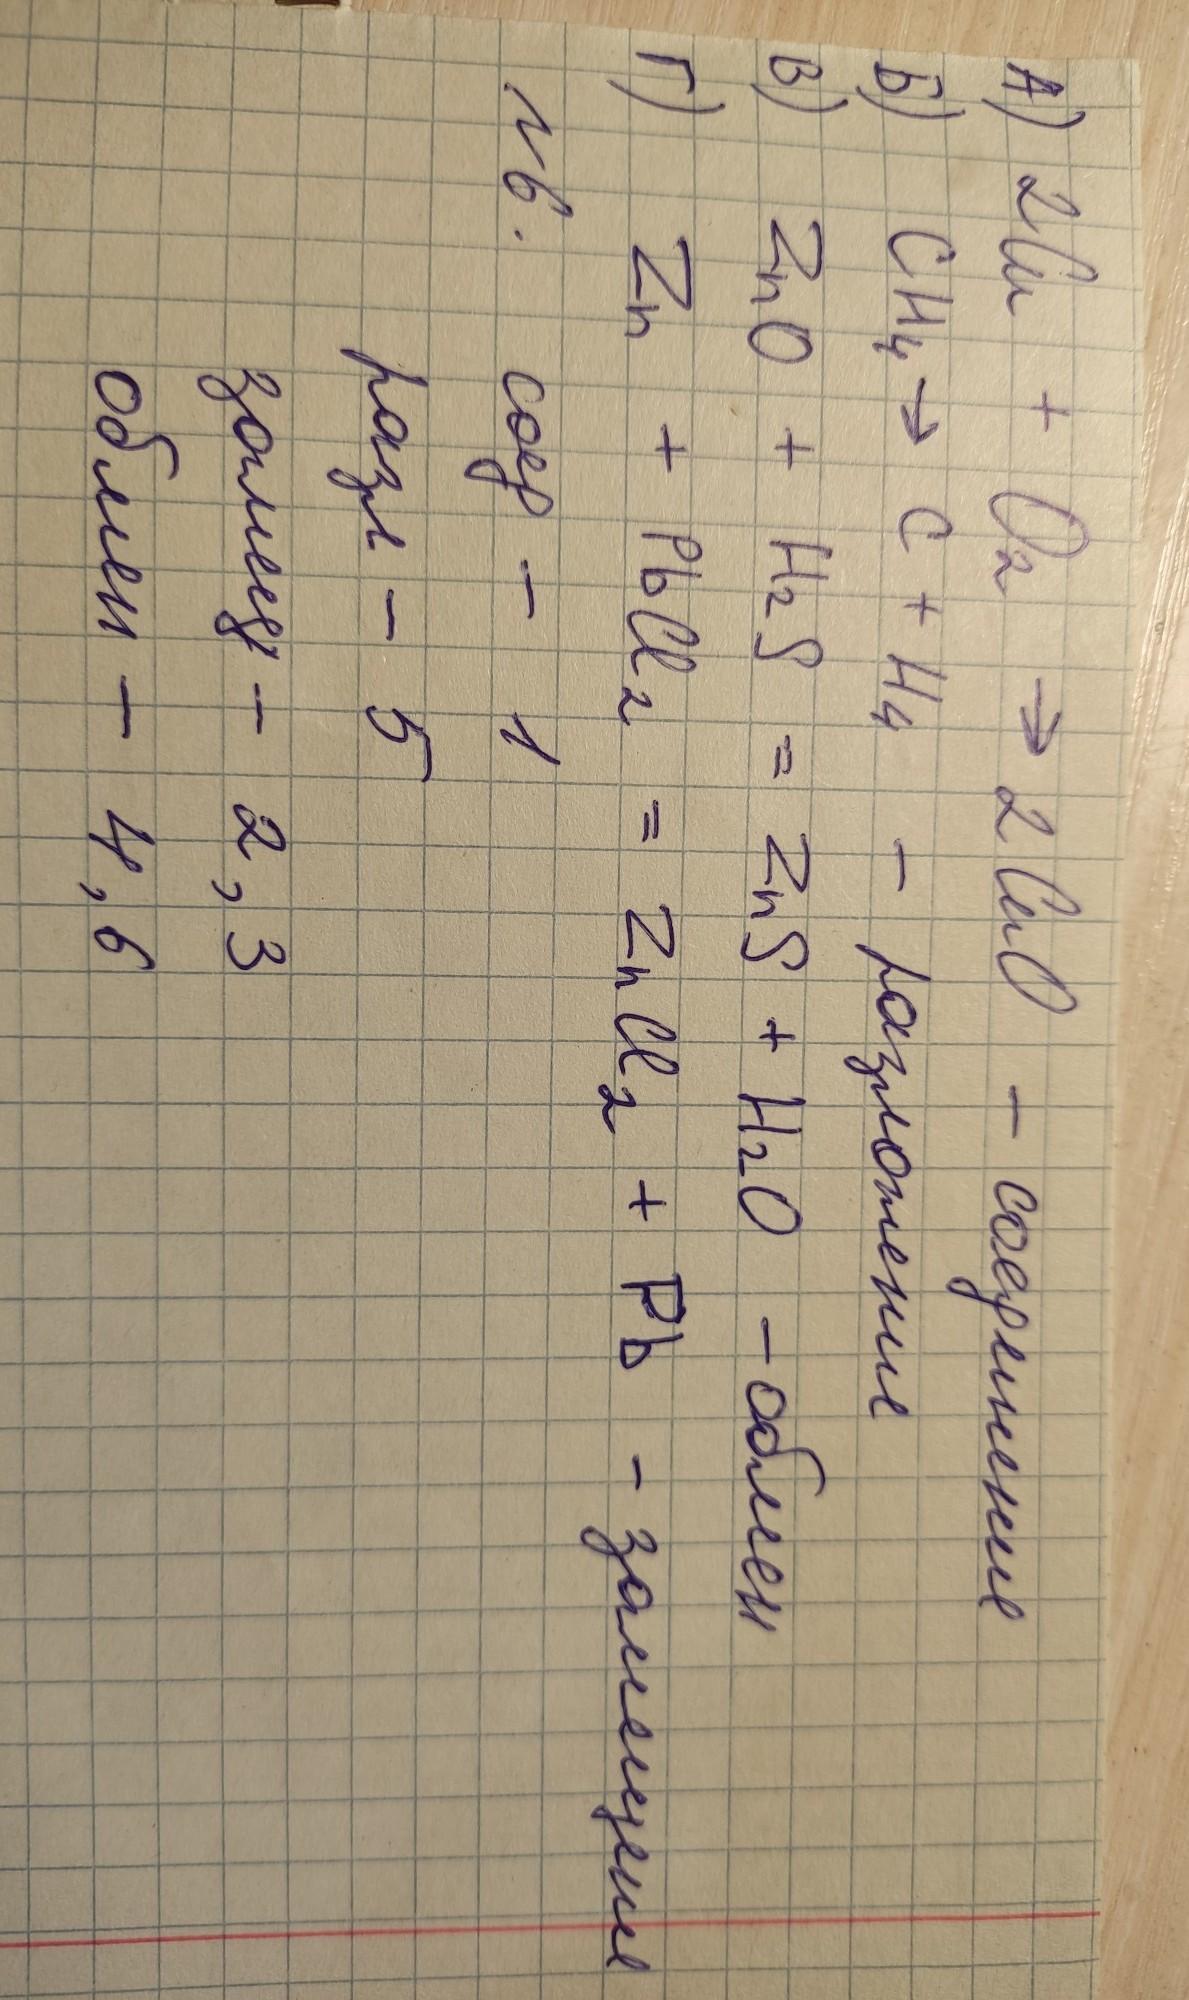 А) 2Cu + O2 → 2CuO - соединение
Б) CH4 → C + H4 - разложение
В) ZnO + H2S = ZnS + H2O - обмен
Г) Zn + PbCl2 = ZnCl2 + Pb - замещение
№6. соед - 1
разл - 5
замещ - 2, 3
обмен - 4, 6